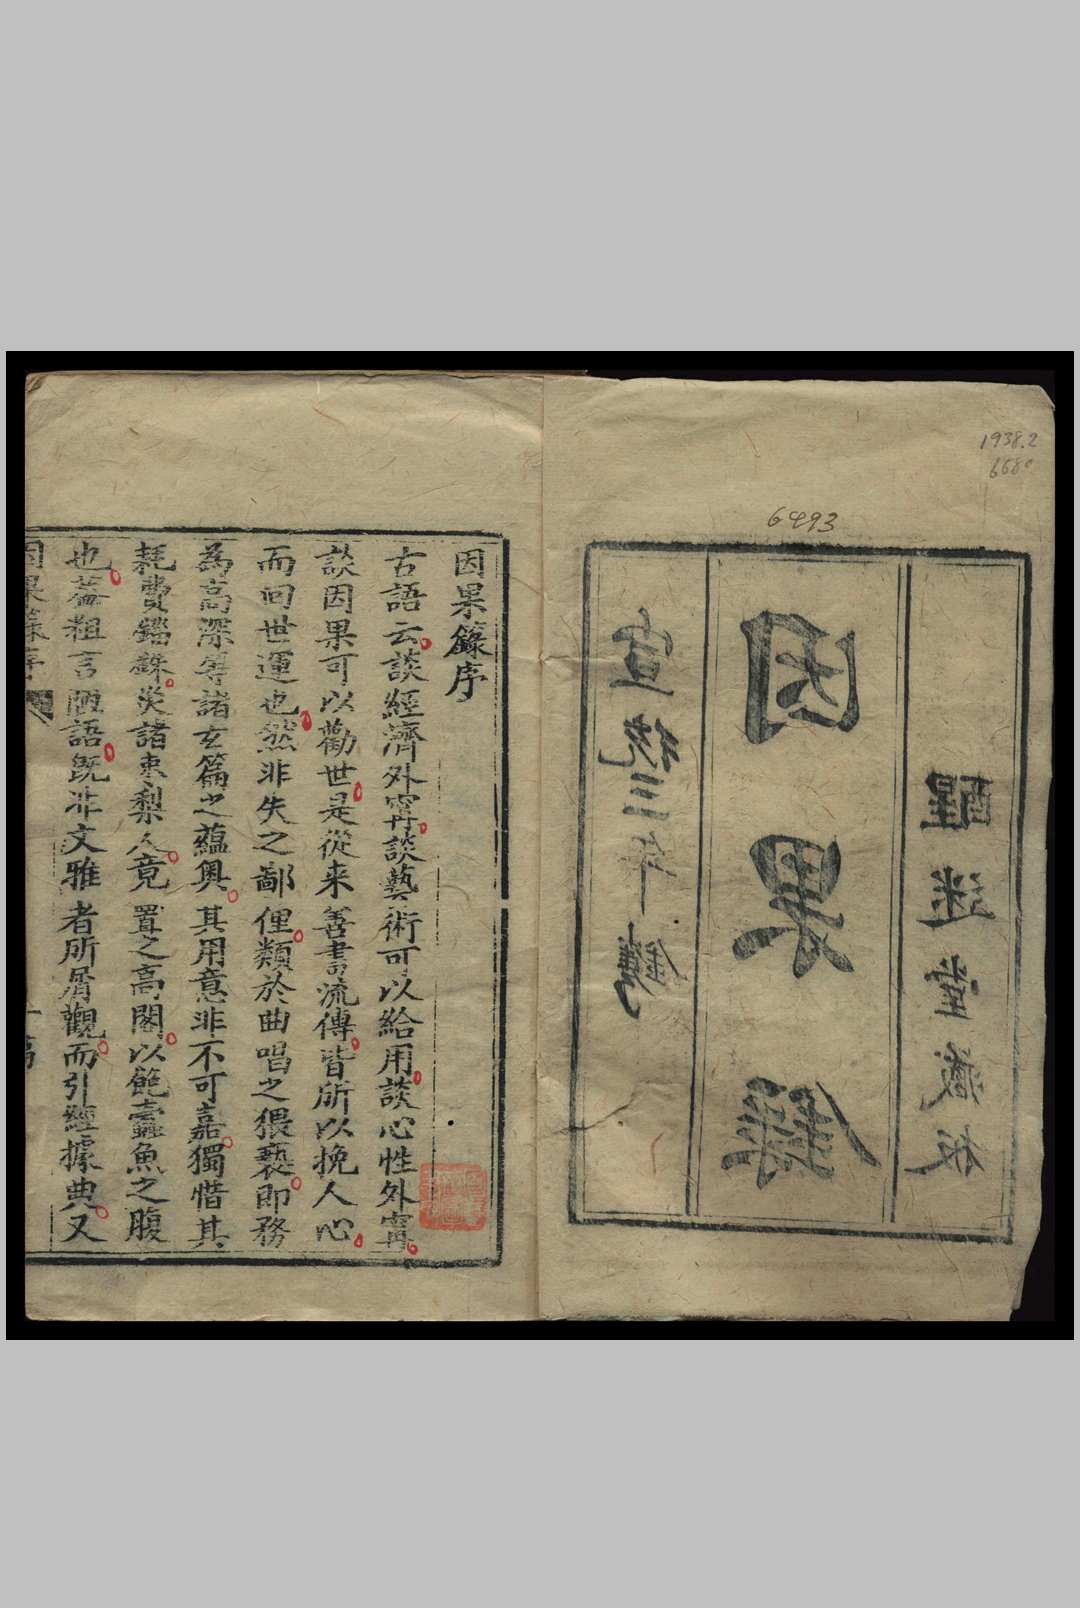 1938.2
6680
6493
醒迷堂藏板
因果錄
宣統三年鐫
因果籙序
古語云談經濟外寗談藝術可以給用談心性外寗
談因果可以勸世是從来善書流傳皆所以挽人心
而回世運也然非失之鄙俚類於曲唱之猥褻即務
為高深等諸玄篇之蘊奧其用意非不可嘉獨惜其
耗費錙銖災諸棗梨人竟置之高閣以飽蠹魚之腹
也蓋粗言俚語既非文雅者所屑觀而引經據典又
因果籙序